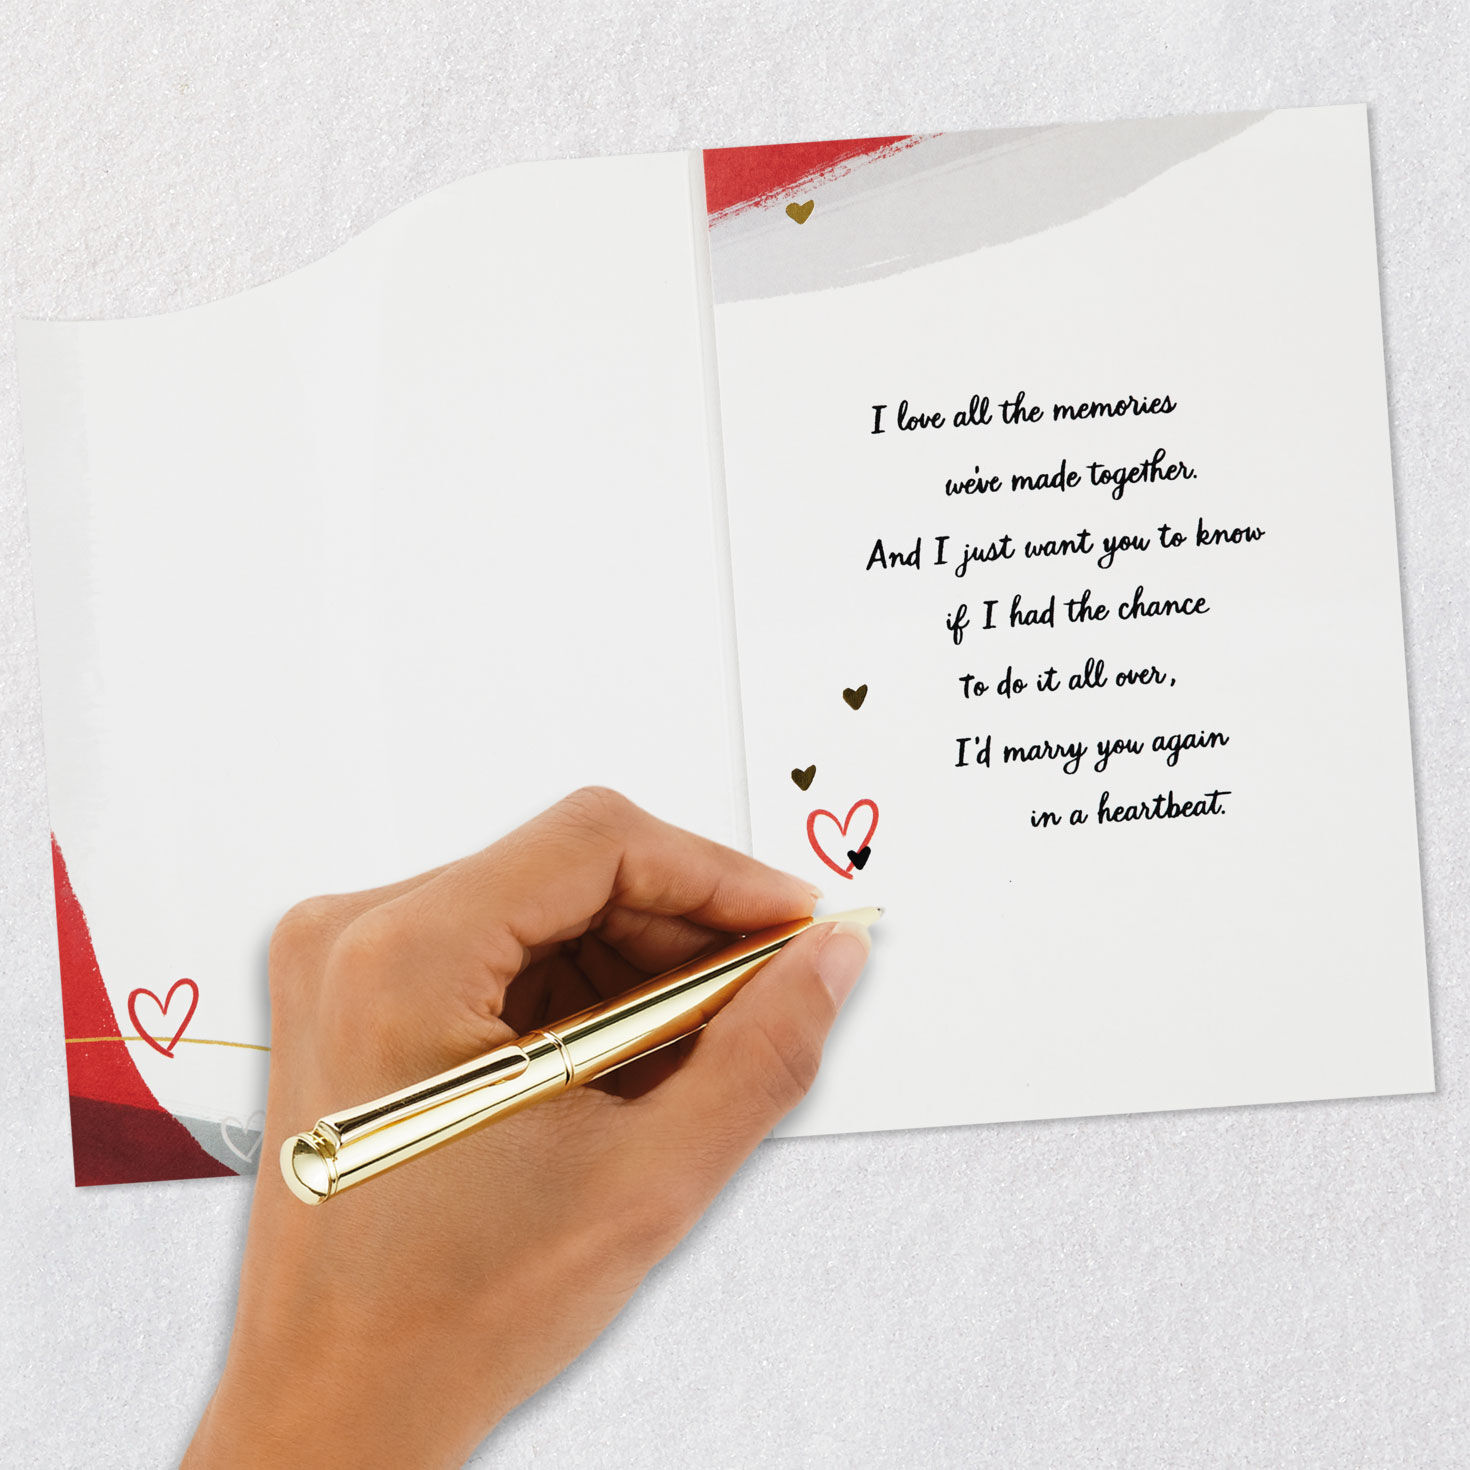 I love all the memories
we've made together.
And I just want you to know
if I had the chance
to do it all over,
I'd marry you again
in a heartbeat.